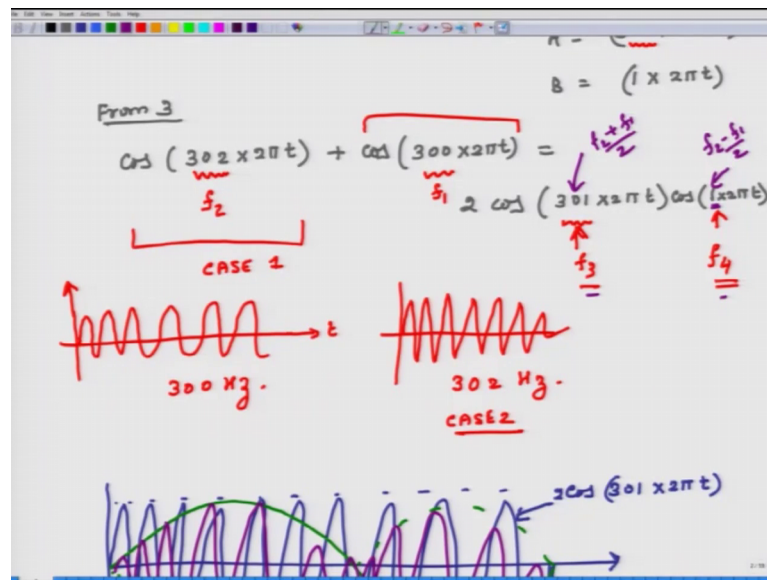 File Edit View Insert Actions Tools Help
B = (1 x 2πt)
From 3
cos (302 x 2πt) + cos (300 x 2πt) =
f₂ f₁
f₂+f₁/2 f₂-f₁/2
2 cos (301 x 2πt) cos (1x2πt)
f₃ f₄
CASE 1
t
300 Hz. 302 Hz.
CASE 2
2cos (301 x 2πt)